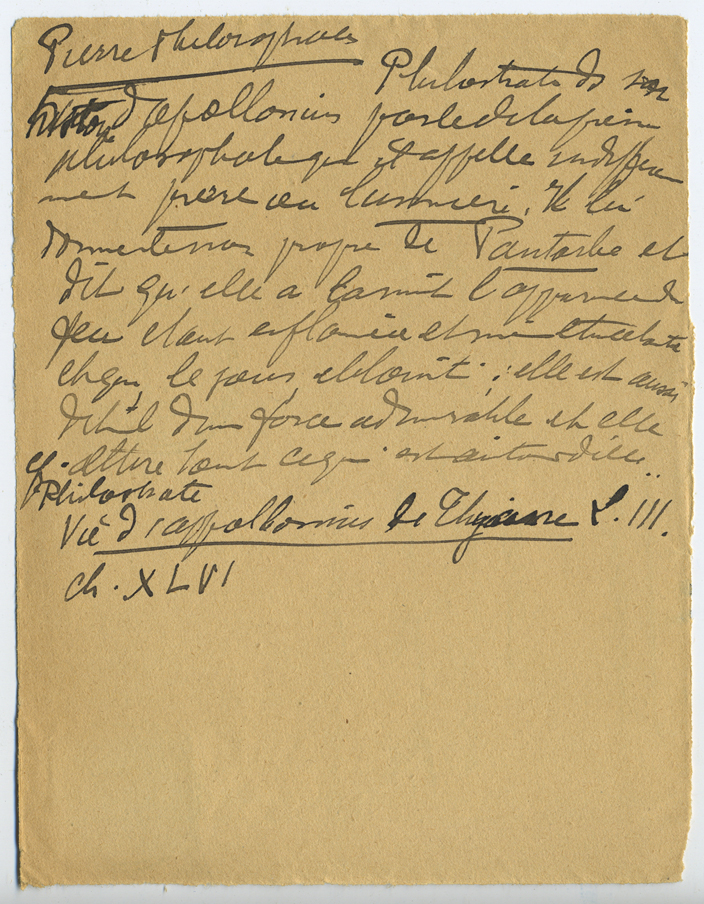 Pierre Philosophale
Philostrate ds son
histoire d'apollonius parle de la pierre
philosophale qu'il appelle indifférem
ment pierre ou lumière. Il lui
donne le nom propre de Pantarbe et
dit qu'elle a la nuit l'apparence du
feu étant enflammée et
et que le jour elle éblouit ; elle est aussi
dit-il d'une force admirable et elle
attire tout ce qui est autour d'elle..
cf. Philostrate
Vie d'appollonius de Thyane L. III.
ch. XLVI